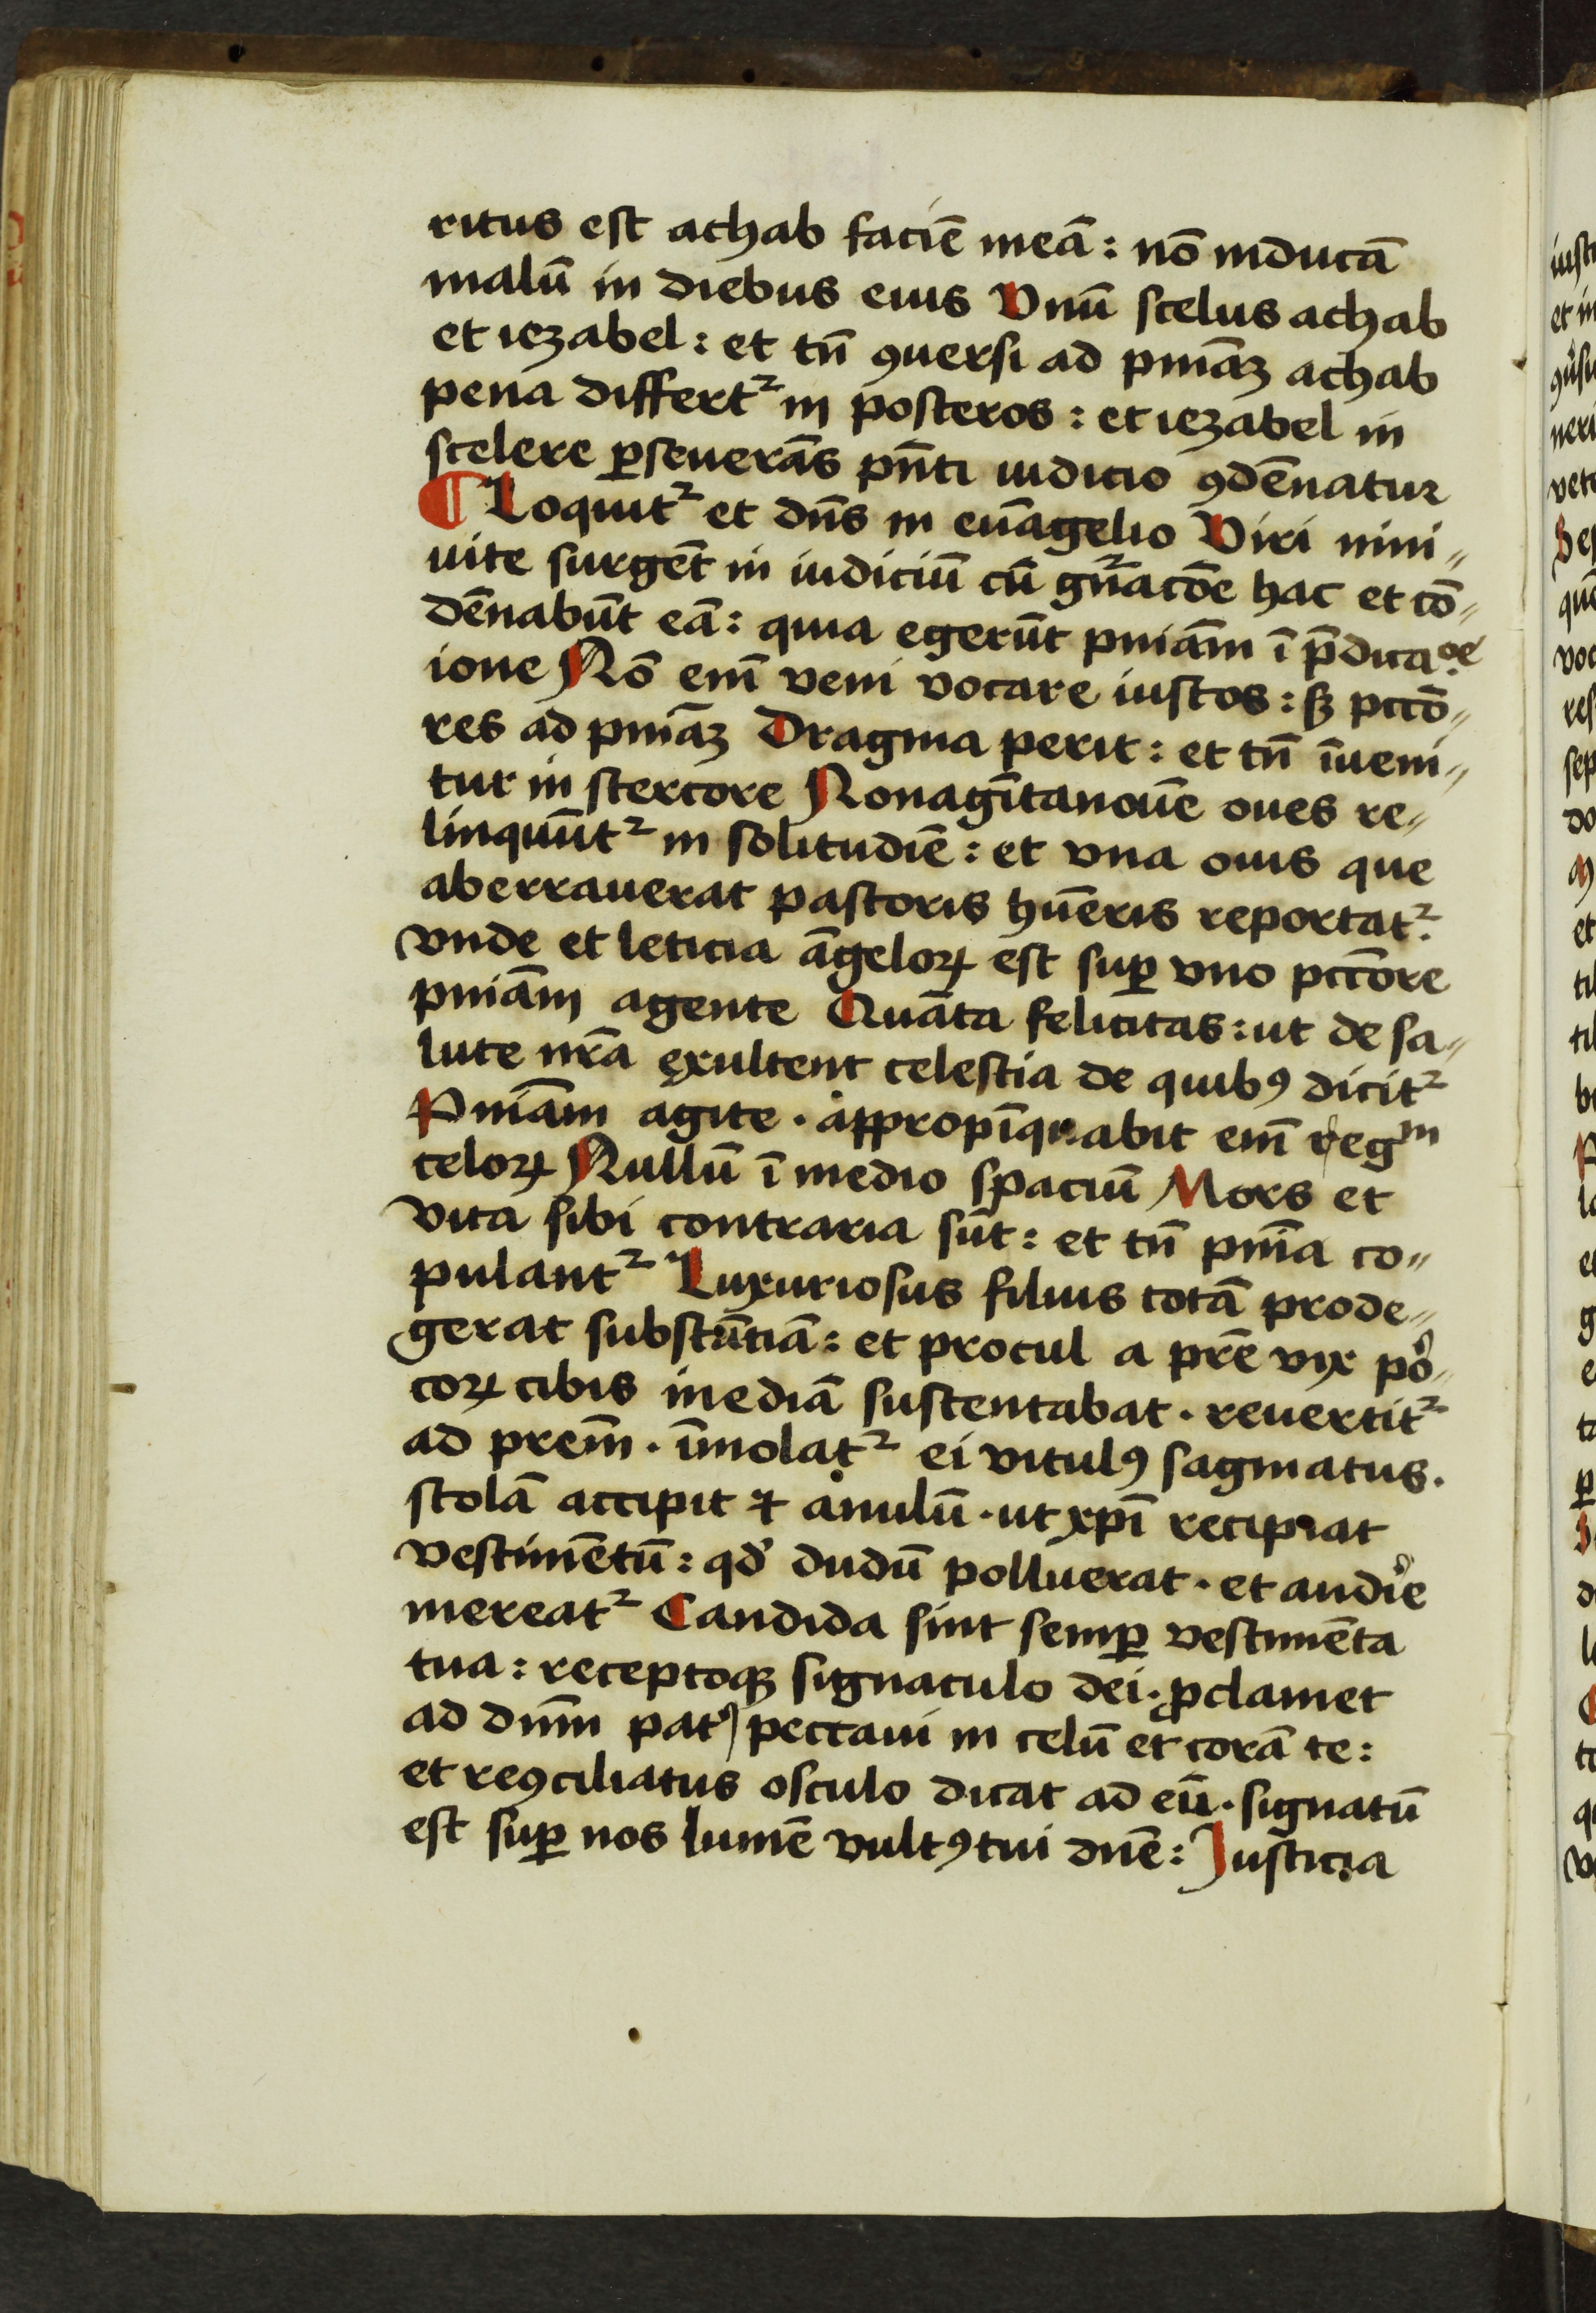 ritus est achab faciē meā : nō inducā
malū in diebus eius Vnū scelus achab
et iezabel : et tn̄ ꝯuersi ad pniāꝫ achab
pena differt᷑ in posteros : et iezabel in
scelere ꝑseuerās pn̄ti iudicio ꝯdēnatur
¶ Loquit᷑ et dn̄s in euāgelio Viri nini„
uite surgēt in iudiciū cū gn̄ac̄oe hac et cō„
dēnabūt eā : quia egerūt pniām ī p̄dicac̄oe
ione Nō enī veni vocare iustos : sꝫ pcc̄o„
res ad pniāꝫ Dragma perit : et tn̄ īueni„
tur in stercore Nonagītanouē oues re„
linquūt᷑ in solitudīe : et vna ouis que
aberrauerat pastoris hūeris reportat᷑.
vnde et leticia āgeloꝝ est suꝑ vno pcc̄ore
pniām agente Quāta felicitas : ut de sa„
lute nr̄a exultent celestia de quibꝯ dicit᷑
Pniām agite . appropīquabit enī regm
celoꝝ Nullū ī medio spaciū Mors et
vita sibi contraria sūt : et tn̄ pnīa co„
pulant᷑ Luxuriosus filius totā prode„
gerat substātiā : et procul a pr̄e vix pe„
coꝝ cibis inediā sustentabat . reuertit᷑
ad prēm . īmolat᷑ ei vitulꝯ saginatus.
stolā accipit ⁊ anulū . ut xpī recipiat
vestimētū : qd̓ dudū polluerat . et audīe
mereat᷑ Candida sint semꝑ vestimēta
tua : receptoqꝫ signaculo dei . ꝓclamet
ad dnm̄ pat᷑ peccaui in celū et corā te :
et reꝯciliatus osculo dicat ad eū . signatū
est suꝑ nos lumē vultꝯ tui dnē : Iusticia